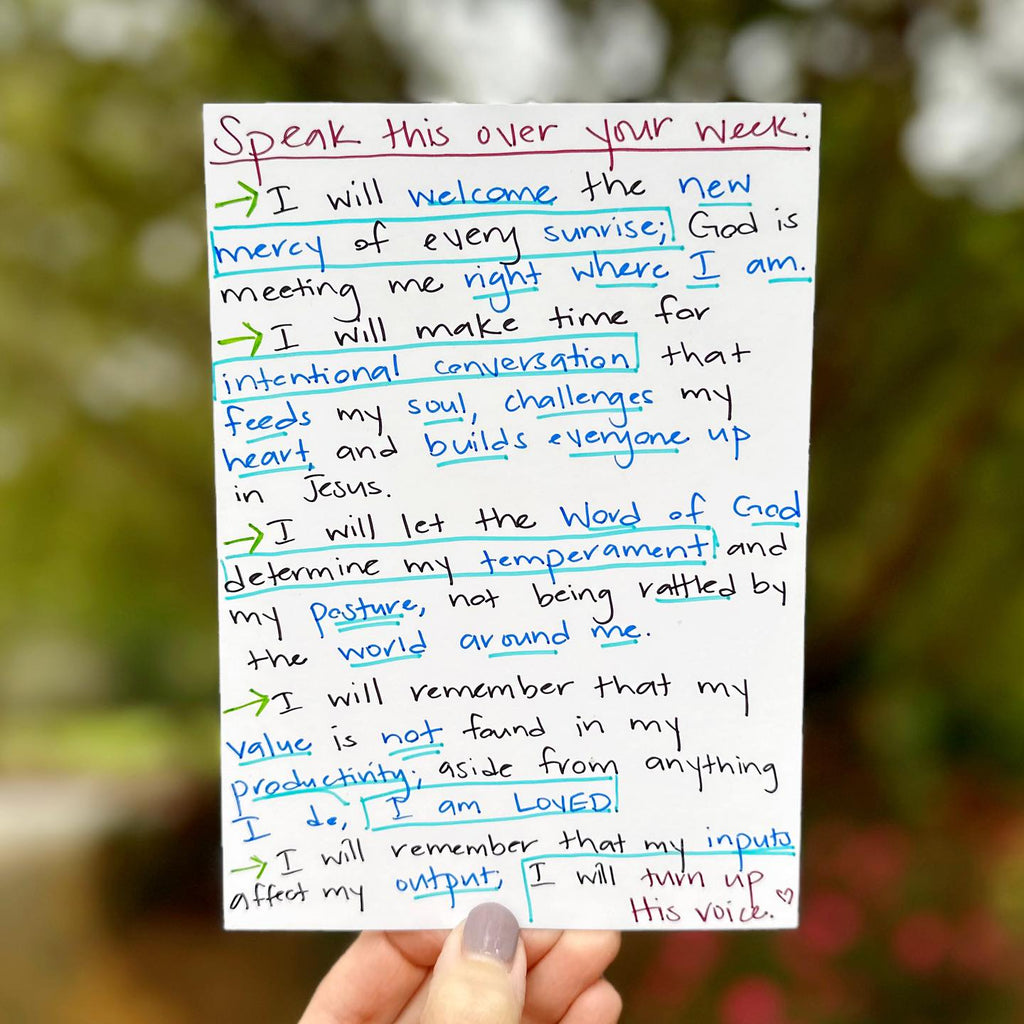 Speak this over your week:
→ I will welcome the new
mercy of every sunrise; God is
meeting me right where I am.
→ I will make time for
intentional conversation that
feeds my soul, challenges my
heart, and builds everyone up
in Jesus.
→ I will let the Word of God
determine my temperament and
my posture, not being rattled by
the world around me.
→ I will remember that my
value is not found in my
productivity; aside from anything
I do, I am LOVED.
→ I will remember that my inputs
affect my output; I will turn up
His voice. ♡